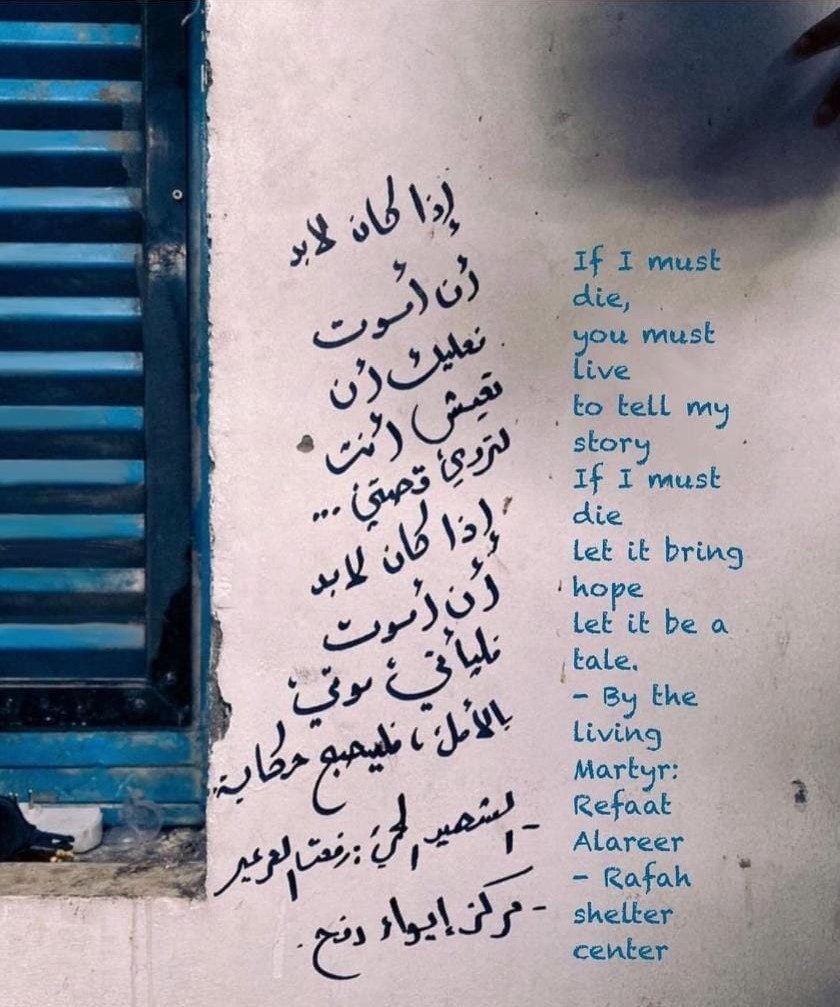 إذا كان لابد
أن أموت
فعليك أن
تعيش أنت
لتروي قصتي ...
إذا كان لابد
أن أموت
فليأتي موتي
بالأمل، فليصبح حكاية.
- الشهيد الحي: رفعت العرعير
- مركز إيواء رفح.
If I must
die,
you must
live
to tell my
story
If I must
die
let it bring
hope
let it be a
tale.
- By the
living
Martyr:
Refaat
Alareer
- Rafah
shelter
center